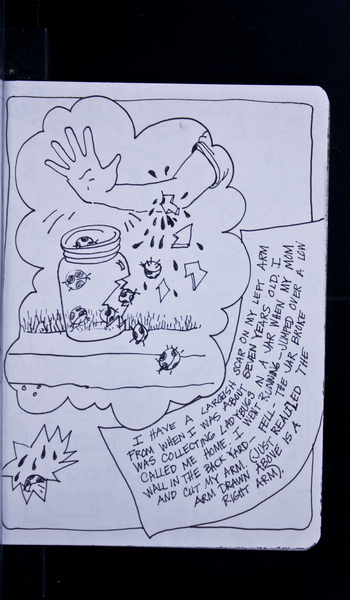 I HAVE A LARGISH SCAR ON MY LEFT ARM
FROM WHEN I WAS ABOUT SEVEN YEARS OLD. I
WAS COLLECTING LADYBUGS IN A JAR WHEN MY MOM
CALLED ME HOME. I WENT RUNNING, JUMPED OVER A LOW
WALL IN THE BACK YARD — FELL — THE JAR BROKE
AND CUT MY ARM. (JUST REALIZED THE
ARM DRAWN ABOVE IS A
RIGHT ARM).